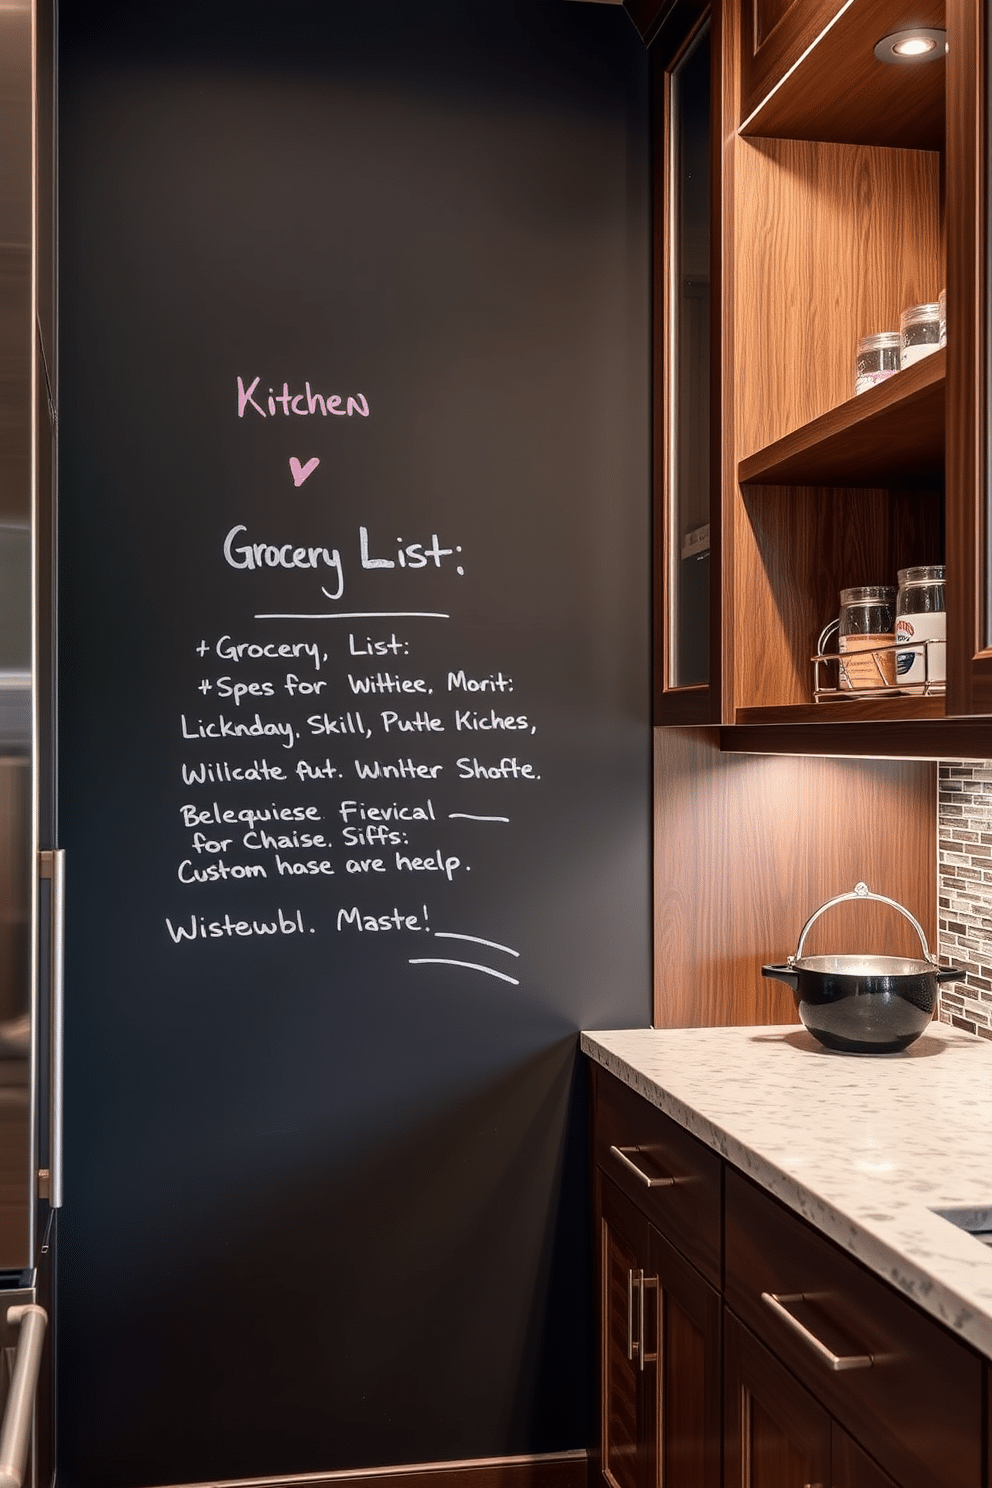 Kitchen
Grocery List:
+Grocery, List:
#Spes for Wittiee, Morit:
Licknday, Skill, Putte Kiches,
Willicate fut. Winhter Shofte.
Belequiese. Fievical
for Chaise. Siffs:
Custom hase are heelp.
Wistewbl. Maste!